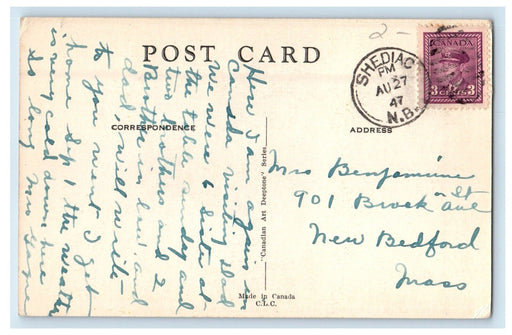 2-
POST CARD
CANADA
3 CENTS 3
SHEDIAC
PM
AU 27
47
N.B.
CORRESPONDENCE
ADDRESS
How I am again in
Canada visiting Dad
We were 6 Sister at
the table Sunday and
two brothers and 2
Brother in law and
dad, will write
to you went I get
home Sep 1 the weather
is very cold down here
So long Mrs
"Canadian Art Deeptone" Series.
Made in Canada
C.L.C.
Mrs Benjamine
901 Brock Ave St
New Bedford
Mass